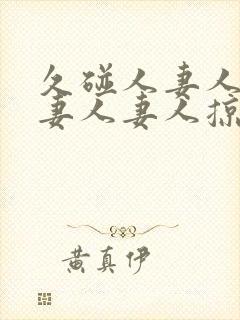 久碰人妻人
妻人妻人掠
黄真伊